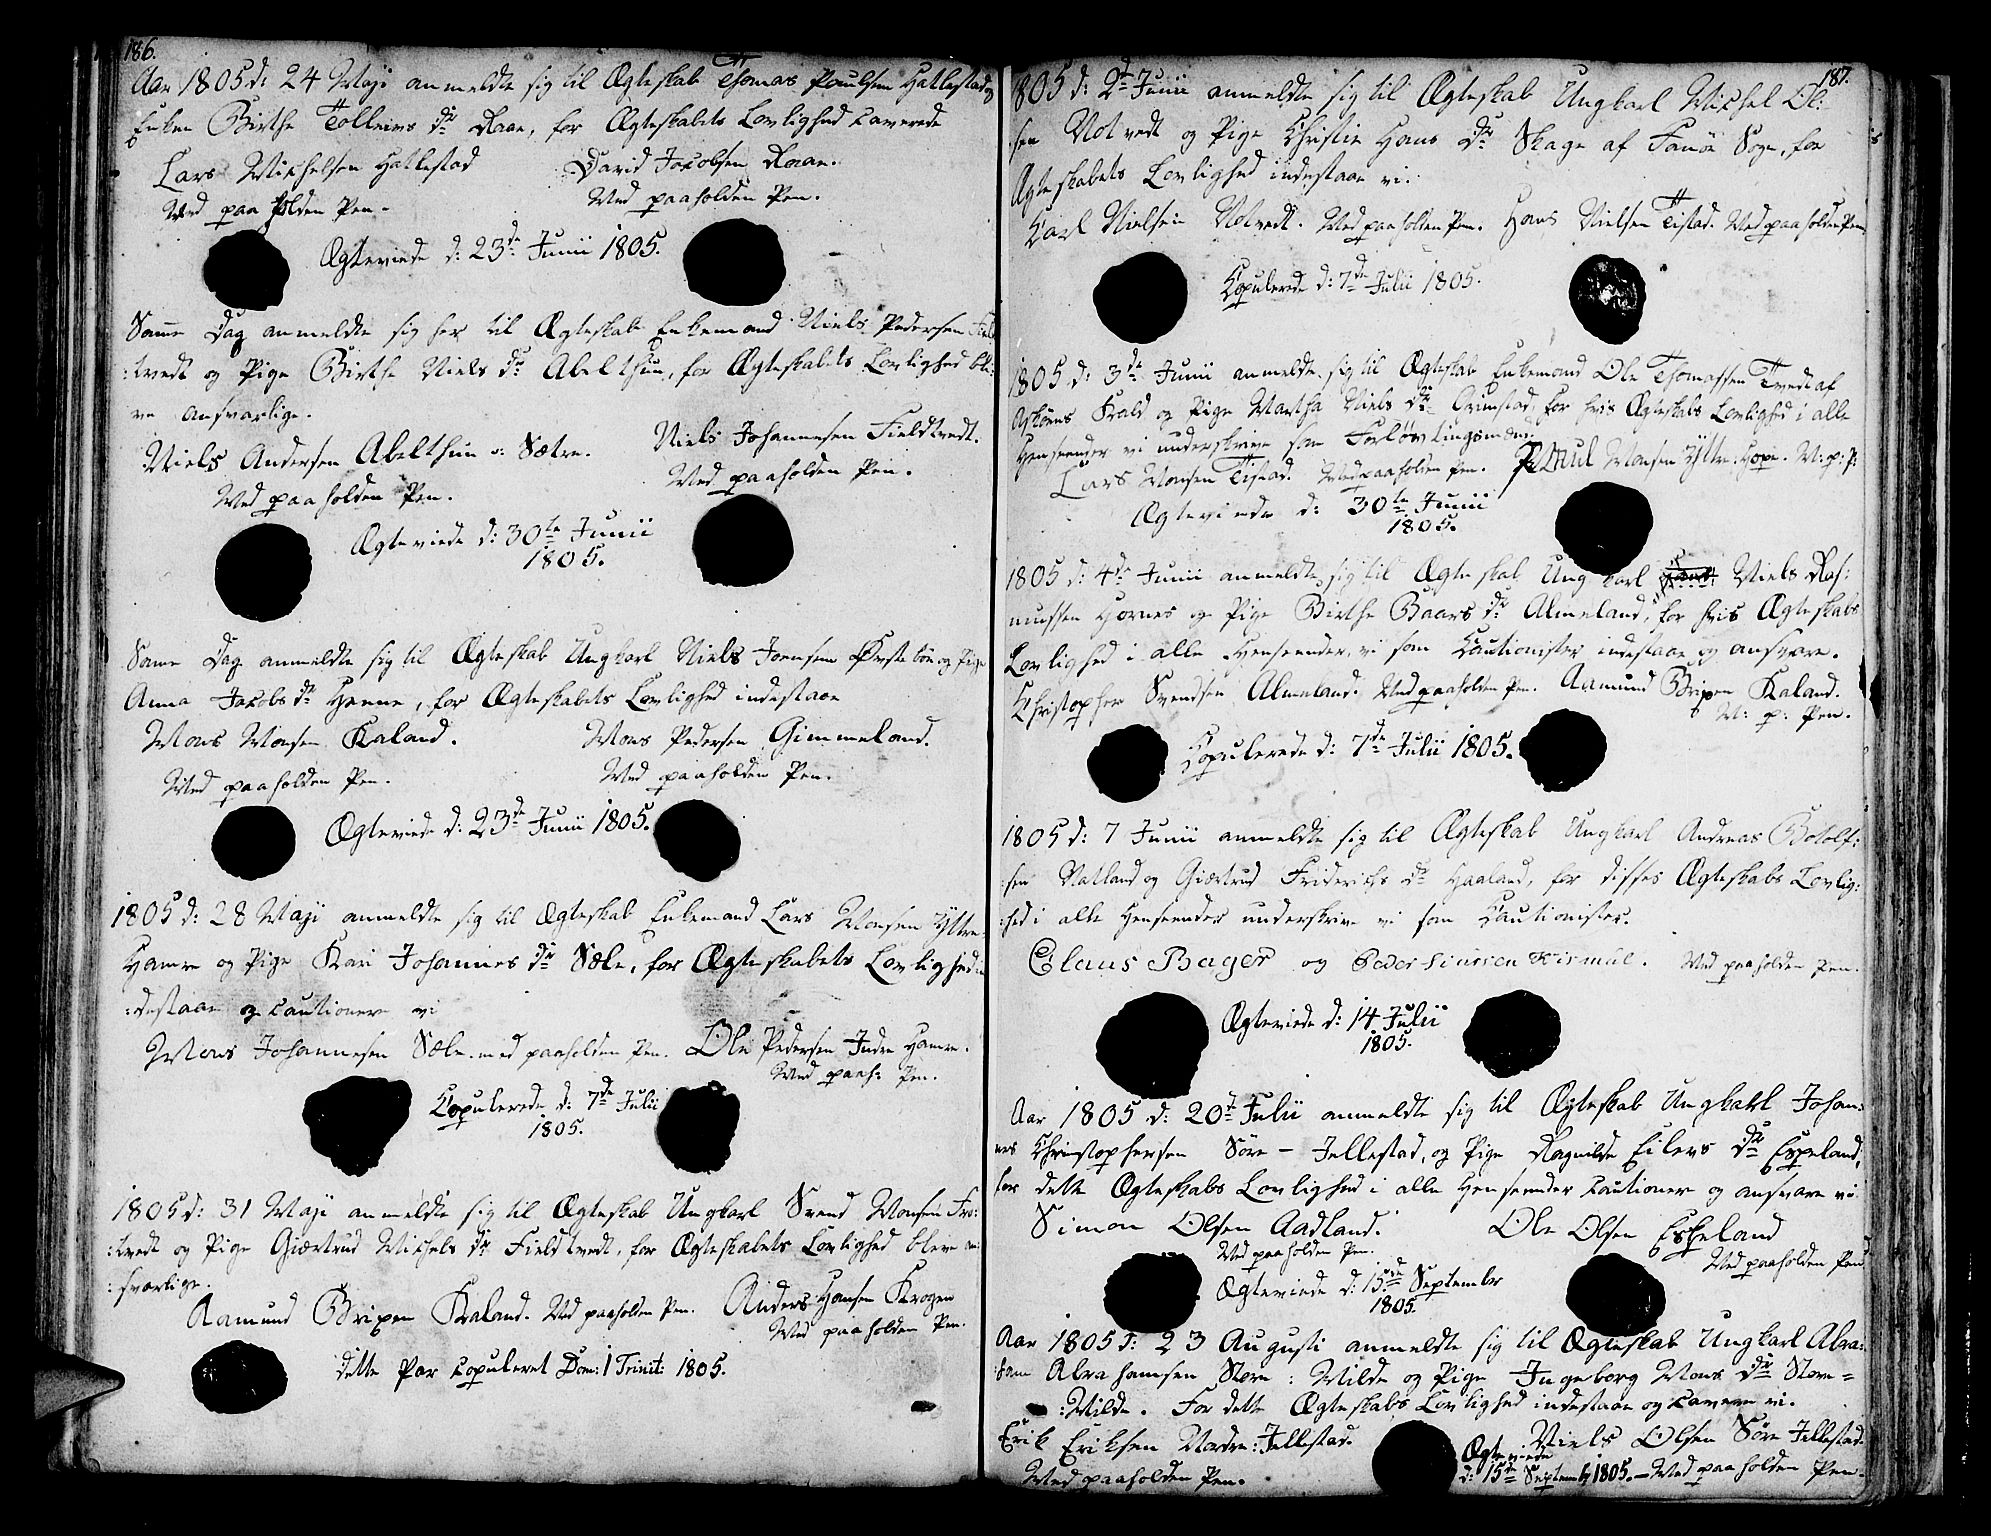 186.
Aar 1805 d: 24 Maji anmeldte sig til Ægteskab Thomas Poulsen Hatlestad og
Enken Birthe Tolleivs dr Raae, for Ægteskabets Lovlighed caverede
Lars Michelsen Hatlestad David Jacobsen Raae.
Med paaholden Pen. Med paaholden Pen.
Ægteviede d: 23de Junii 1805.
Samme Dag anmeldte sig her til Ægteskab Enkemand Niels Pedersen Field
:tvedt og Pige Birthe Niels dr Abelthun, for Ægteskabets Lovlighed bli:
ve ansvarlige.
Niels Andersen Abelthun Sætre. Niels Johannesen Fieldtvedt.
Med paaholden Pen. Med paaholden Pen.
Ægteviede d: 30te Junii
1805.
Same Dag anmeldte sig til Ægteskab Ungkarl Niels Joensen Øvstebøe og Pige
Anna Jacobs dr Henne, for Ægteskabets Lovlighed indestaae
Mons Monsen Kaland. Mons Pedersen Gimmeland.
Med paaholden Pen. Med paaholden Pen.
Ægteviede d: 23de Junii 1805.
1805 d: 28 Maji anmeldte sig til Ægteskab Enkemand Lars Monsen Yttre
Hamre og Pige Kari Johannes dr Sæle, for Ægteskabets Lovlighed in
:destaae og cautionere vi
Mons Johannesen Sæle. med paaholden Pen. Ole Pedersen Indre Hamre.
Med paah: Pen.
Copulerede d: 7de Julii
1805.
1805 d: 31 Maji anmeldte sig til Ægteskab Ungkarl Svend Monsen Tvo:
:tvedt og Pige Giærtrud Michels dr Fieldtvedt, for Ægteskabets Lovlighed bleve an:
:svarlige.
Aamund Brixen Kaland. Med paaholden Pen. Anders Hansen Krogen
Med paaholden Pen.
dette Par copuleret Dom: 1 Trinit: 1805.
187.
1805 d: 2d Junii anmeldte sig til Ægteskab Ungkarl Michel Ol:
sen Notvedt og Pige Christie Hans dr Skage af Fanöe Sogn, for
Ægteskabets Lovlighed indestaae vi.
Karl Nielsen Notvedt. Med paaholden Pen. Hans Nielsen Tistad. Med paaholden Pen.
Copulerede d: 7de Julii 1805.
1805 d: 3de Junii anmeldte sig til Ægteskab Enkemand Ole Thomassen Tvedt af
Askøens Kald og Pige Martha Niels dr Grimstad, for hvis Ægteskabs Lovlighed i alle
Henseender vi underskrive som Forlovlingsmænd.
Lars Monsen Tistad. Med paaholden Pen. Poul Monsen Yttre: Hope. M: p: P:
Ægteviede d: 30te Junii
1805.
1805 d: 4de Junii anmeldte sig til Ægteskab Ungkarl Niels Ras:
mussen Hornes og Pige Birthe Baars dr Almeland, for hvis Ægteskabs
Lovlighed i alle Henseender, vi som Cautionister indestaae og ansvare.
Christopher Svendsen Almeland. Med paaholden Pen. Aamund Brixen Kaland.
M: p: Pen.
Copulerede d: 7de Julii 1805.
1805 d: 7 Junii anmeldte sig til Ægteskab Ungkarl Andreas Botolf:
:sen Natland og Giærtrud Friderichs dr Haaland, for disses Ægteskabs Lovlig:
:hed i alle Henseender underskrive vi som Cautionister.
Claus Bager og Peder Siursen Kirmul. Med paaholden Pen.
Ægteviede d: 14 Julii
1805.
Aar 1805 d: 20d Julii anmeldte sig til Ægteskab Ungkarl Johan:
nes Christophersen Søre-Jellestad, og Pige Ragnilde Eilers dr Espeland,
for dette Ægteskabs Lovlighed i alle Henseender cautionere og ansvare vi
Simon Olsen Aadland. Ole Olsen Espeland
Med paaholden Pen. Med paaholden Pen
Ægteviede d: 15de September
1805.
Aar 1805 d: 23 Augusti anmeldte sig til Ægteskab Ungkarl Abra:
:ham Abrahamsen Store: Milde og Pige Ingeborg Mons dr Store=
:Milde. For dette Ægteskabs Lovlighed indestaae og cavere vi.
Erik Eriksen Nordre: Jellestad. Niels Olsen Søre Jellestad.
Med paaholden Pen. Ægteviede
d: 15de Septemb 1805. Med paaholden Pen.